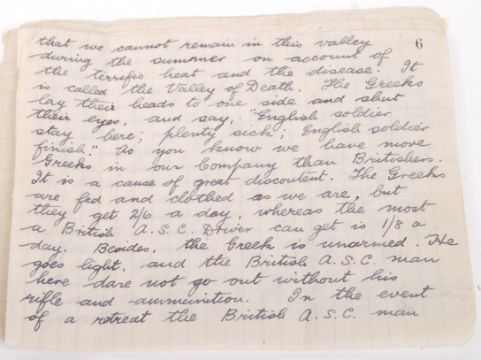 6
that we cannot remain in this valley
during the summer on account of
the terrific heat and the disease. It
is called the Valley of Death. The Greeks
lay their heads to one side and shut
their eyes, and say, "English soldier
stay here; plenty sick; English soldier
finish." As you know we have more
Greeks in our Company than Britishers.
It is a cause of great discontent. The Greeks
are fed and clothed as we are, but
they get 2/6 a day, whereas the most
a British A.S.C. Driver can get is 1/8 a
day. Besides, the Greek is unarmed. He
goes light, and the British A.S.C. man
here dare not go out without his
rifle and ammunition. In the event
of a retreat the British A.S.C. man